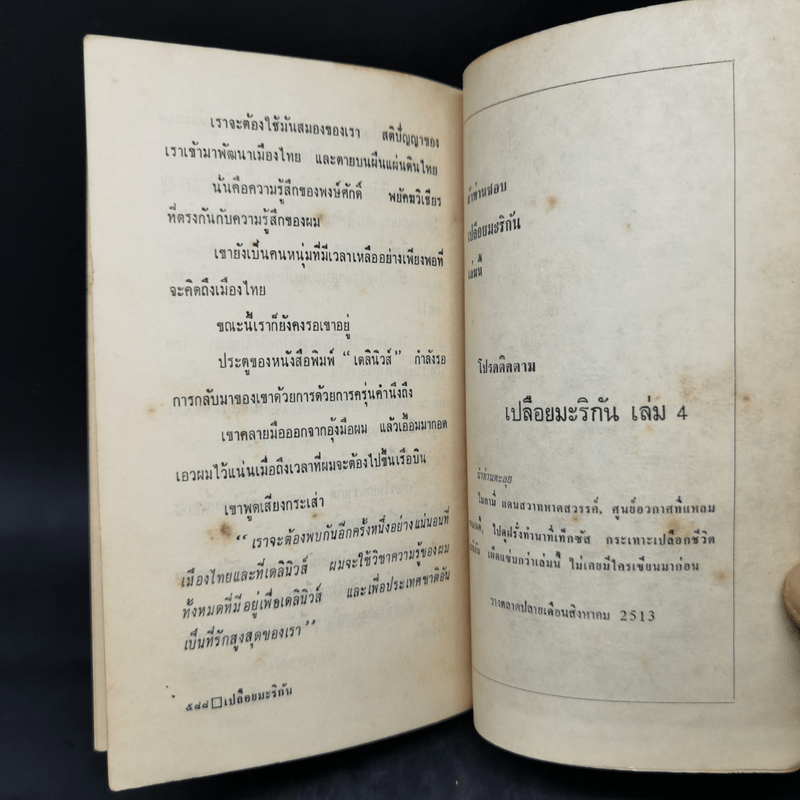 เราจะต้องใช้มันสมองของเรา สติปัญญาของ
เราเข้ามาพัฒนาเมืองไทย และตายบนผืนแผ่นดินไทย
นั้นคือความรู้สึกของพงษ์ศักดิ์ พยัคฆวิเชียร
ที่ตรงกันกับความรู้สึกของผม
เขายังเป็นคนหนุ่มที่มีเวลาเหลืออย่างเพียงพอที่
จะคิดถึงเมืองไทย
ขณะนี้เราก็ยังคงรอเขาอยู่
ประตูของหนังสือพิมพ์ “เดลินิวส์” กำลังรอ
การกลับมาของเขาด้วยการด้วยการครุ่นคำนึงถึง
เขาคลายมือออกจากอุ้งมือผม แล้วเอื้อมมากอด
เอวผมไว้แน่นเมื่อถึงเวลาที่ผมจะต้องไปขึ้นเรือบิน
เขาพูดเสียงกระเส่า
“เราจะต้องพบกันอีกครั้งหนึ่งอย่างแน่นอนที่
เมืองไทยและที่เดลินิวส์ ผมจะใช้วิชาความรู้ของผม
ทั้งหมดที่มีอยู่เพื่อเดลินิวส์ และเพื่อประเทศชาติอัน
เป็นที่รักสูงสุดของเรา”
๕๘๘ □ เปลือยมะริกัน
ถ้าท่านชอบ
เปลือยมะริกัน
เล่มนี้
โปรดติดตาม
เปลือยมะริกัน เล่ม 4
นำท่านตะลุย
ไมอามี่ แดนสวาทหาดสวรรค์, ศูนย์อวกาศที่แหลม
ไปดูฝรั่งทำนาที่เท็กซัส กระเทาะเปลือกชีวิต
เผ็ดแซ่บกว่าเล่มนี้ ไม่เคยมีใครเขียนมาก่อน
วางตลาดปลายเดือนสิงหาคม 2513